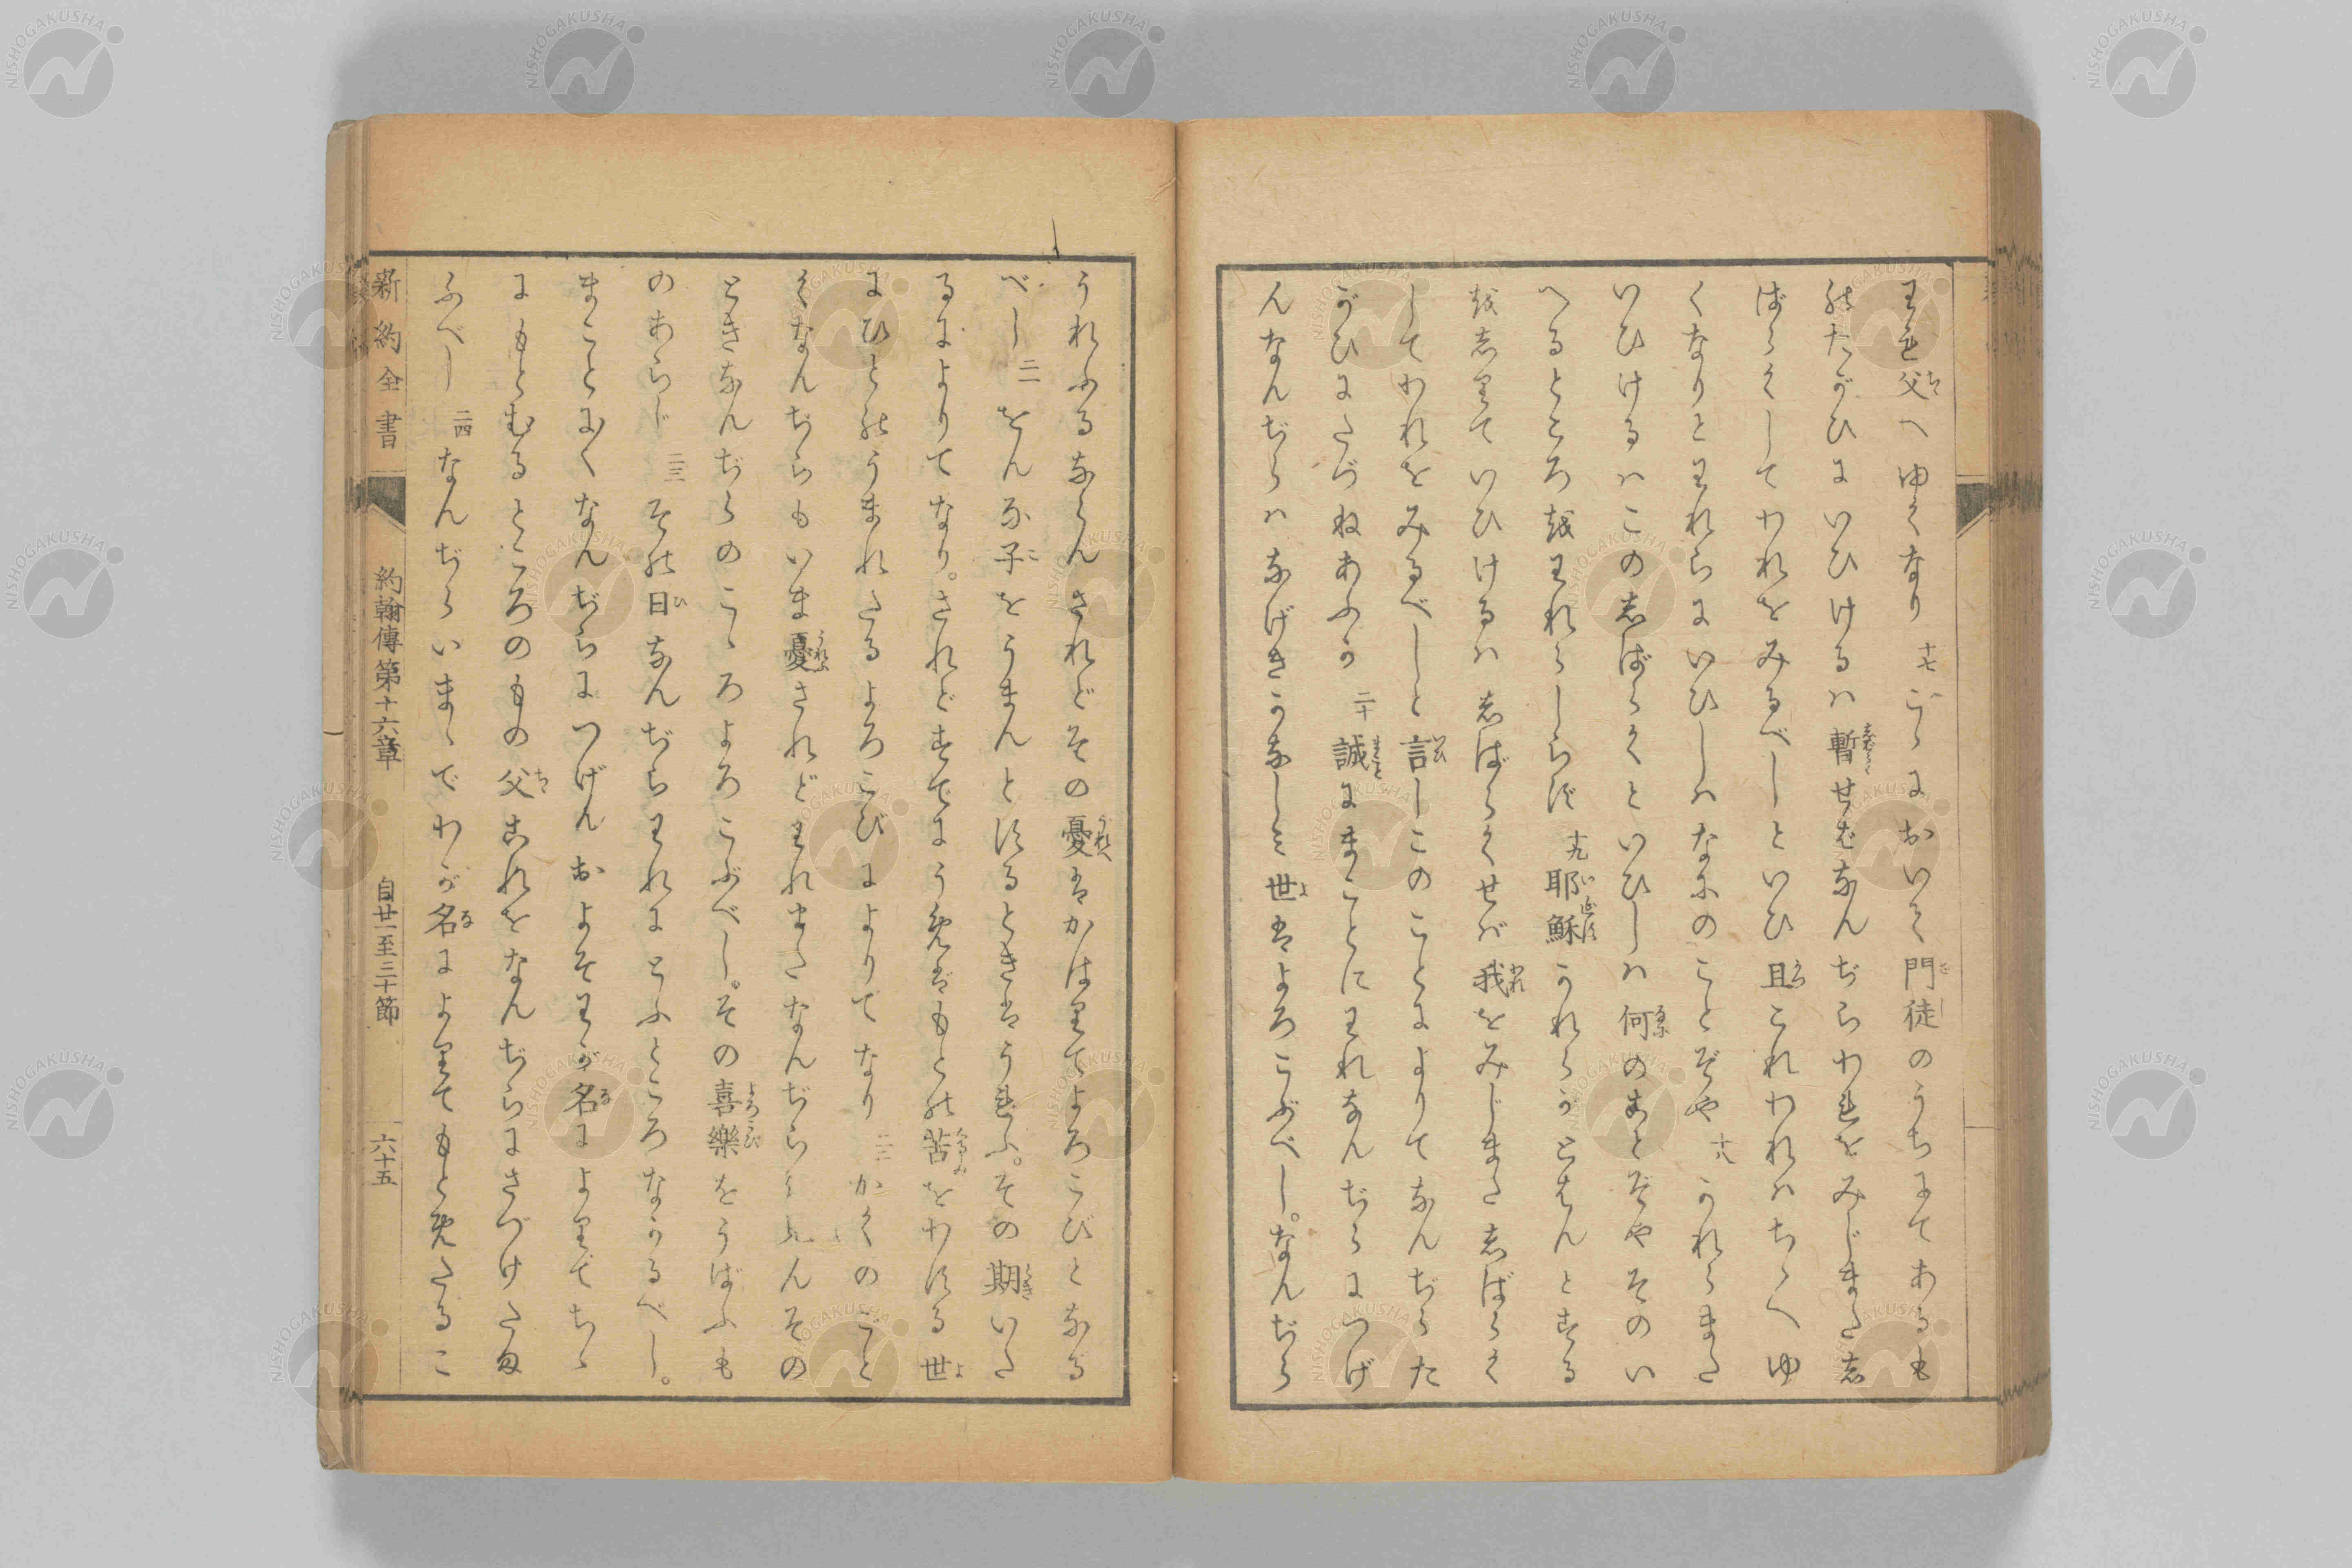 われ父へゆくなり 十七 こゝにおいて門徒のうちにてあるも
のたがひにいひけるハ暫せばなんぢらわれをみじまた志
ばらくしてわれをみるべしといひ且これわれハちゝへゆ
くなりとわれらにいひしハなにのことぞや 十八 かれらまた
いひけるハこの志ばらくといひしハ何のことぞやそのい
へるところをわれらしらず 十九 耶穌かれらがとはんとする
を志りていひけるハ志ばらくせバ我をみじまた志ばらく
してわれをみるべしと言しこのことによりてなんぢらた
がひにたづねあふか 二十 誠にまことにわれなんぢらにつげ
んなんぢらハなげきかなしみ世はよろこぶべし。なんぢら
うれふるならんされどその憂はかはりてよろこびとなる
べし 二一 をんな子をうまんとするときはうれふ。その期いた
るによりてなり。されどすでにうめばもとの苦をわする世
にひとのうまれたるよろこびによりてなり 二二 かくのごと
くなんぢらもいま憂されどわれまたなんぢらをみんその
ときなんぢらのこゝろよろこぶべし。その喜樂をうばふも
のあらじ 二三 その日なんぢらわれにとふところなかるべし。
まことにまことになんぢらにつげんおよそわが名によりてちゝ
にもとむるところのもの父これをなんぢらにさづけたま
ふべし 二四 なんぢらいまゝでわが名によりてもとめたるこ
新約全書 約翰傳第十六章 自廿一至三十節 六十五